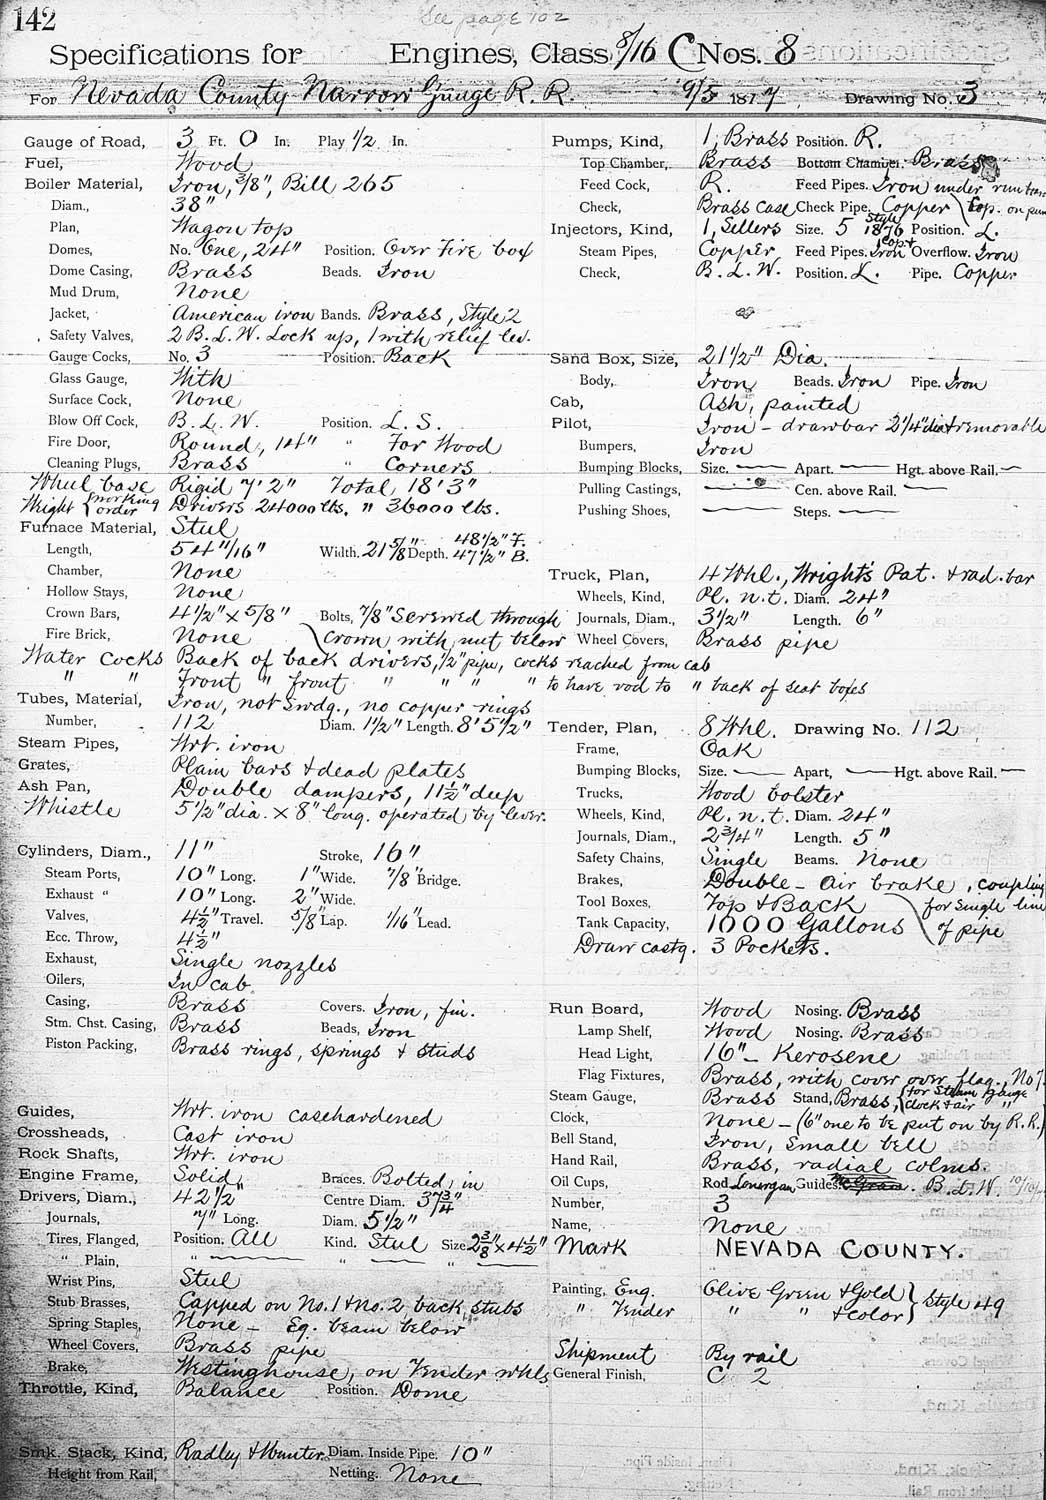 142
See page 102
Specifications for Engines, Class 8/16 C Nos. 8
For Nevada County Narrow Gauge R. R. 9/5 1877 Drawing No. 3
Gauge of Road, 3 Ft. 0 In. Play 1/2 In.
Fuel, Wood
Boiler Material, Iron, 3/8", Bill 265
Diam., 38"
Plan, Wagon top
Domes, No. One, 24" Position. Over Fire box
Dome Casing, Brass Beads. Iron
Mud Drum, None
Jacket, American iron Bands. Brass, Style 2
Safety Valves, 2 B. L. W. Lock up, 1 with relief lev.
Gauge Cocks, No. 3 Position. Back
Glass Gauge, With
Surface Cock, None
Blow Off Cock, B. L. W. Position. L. S.
Fire Door, Round, 14" " For Wood
Cleaning Plugs, Brass " Corners
Wheel base Rigid 7' 2" Total 18' 3"
Weight { working order Drivers 24000 lbs. " 36000 lbs.
Furnace Material, Steel
Length, 54 11/16" Width. 21 5/8" Depth. 48 1/2" F. 47 1/2" B.
Chamber, None
Hollow Stays, None
Crown Bars, 4 1/2" x 5/8" Bolts, 7/8" Screwed through
Fire Brick, None crown with nut below
Water Cocks Back of back drivers, 1/2" pipe, cocks reached from cab
" " Front " front " " " " to have rod to " back of seat boxes
Tubes, Material, Iron, not swdg., no copper rings
Number, 112 Diam. 1 1/2" Length. 8' 5 1/2"
Steam Pipes, Wrt. iron
Grates, Plain bars & dead plates
Ash Pan, Double dampers, 11 1/2" deep
Whistle 5 1/2" dia. x 8" long. operated by lever.
Cylinders, Diam., 11" Stroke, 16"
Steam Ports, 10" Long. 1" Wide. 7/8" Bridge.
Exhaust " 10" Long. 2" Wide.
Valves, 4 1/2" Travel. 5/8" Lap. 1/16" Lead.
Ecc. Throw, 4 1/2"
Exhaust, Single nozzles
Oilers, In cab
Casing, Brass Covers. Iron, fin.
Stm. Chst. Casing, Brass Beads, Iron
Piston Packing, Brass rings, springs & studs
Guides, Wrt. iron casehardened
Crossheads, Cast iron
Rock Shafts, Wrt. iron
Engine Frame, Solid, Braces. Bolted in
Drivers, Diam., 42 1/2" Centre Diam. 37 3/4"
Journals, 7" Long. Diam. 5 1/2"
Tires, Flanged, Position. All Kind. Steel Size 2 3/8" x 4 1/2"
" Plain, " " "
Wrist Pins, Steel
Stub Brasses, Capped on No. 1 & No. 2 back stubs
Spring Staples, None – Eq. beam below
Wheel Covers, Brass pipe
Brake, Westinghouse, on Tender whls
Throttle, Kind, Balance Position. Dome
Smk. Stack, Kind, Radley & Hunter Diam. Inside Pipe. 10"
Height from Rail, Netting. None
Pumps, Kind, 1, Brass Position. R.
Top Chamber, Brass Bottom Chamber. Brass
Feed Cock, R. Feed Pipes. Iron under run
Check, Brass Case Check Pipe. Copper Cop. on
Injectors, Kind, 1, Sellers Size. 5 Style 1876 Position. L.
Steam Pipes, Copper Feed Pipes. Iron Overflow. Iron
Check, B. L. W. Position. L. Pipe. Copper
Sand Box, Size, 21 1/2" Dia.
Body, Iron Beads. Iron Pipe. Iron
Cab, Ash, painted
Pilot, Iron – drawbar 2 1/4" dia & removable
Bumpers, Iron
Bumping Blocks, Size. — Apart. — Hgt. above Rail. —
Pulling Castings, — Cen. above Rail. —
Pushing Shoes, — Steps. —
Truck, Plan, 4 Whl., Wright's Pat. & rad. bar
Wheels, Kind, Pl. n. t. Diam. 24"
Journals, Diam., 3 1/2" Length. 6"
Wheel Covers, Brass pipe
Tender, Plan, 8 Whl. Drawing No. 112
Frame, Oak
Bumping Blocks, Size. — Apart, — Hgt. above Rail. —
Trucks, Wood bolster
Wheels, Kind, Pl. n. t. Diam. 24"
Journals, Diam., 2 3/4" Length. 5"
Safety Chains, Single Beams. None
Brakes, Double – air brake, coupling
Tool Boxes, Top & Back for single line
Tank Capacity, 1000 Gallons of pipe
Draw castg. 3 Pockets.
Run Board, Wood Nosing. Brass
Lamp Shelf, Wood Nosing. Brass
Head Light, 16" – Kerosene
Flag Fixtures, Brass, with cover over flag., No 7.
Steam Gauge, Brass Stand, Brass, { for Steam gauge clock & air "
Clock, None – (6" one to be put on by R. R.)
Bell Stand, Iron, small bell
Hand Rail, Brass, radial colms.
Oil Cups, Rod Lonergan Guides. B. L. W.
Number, 3
Name, None
Mark NEVADA COUNTY.
Painting, Eng. Olive Green & Gold } Style 49
" Tender " " & color
Shipment By rail
General Finish, C 2